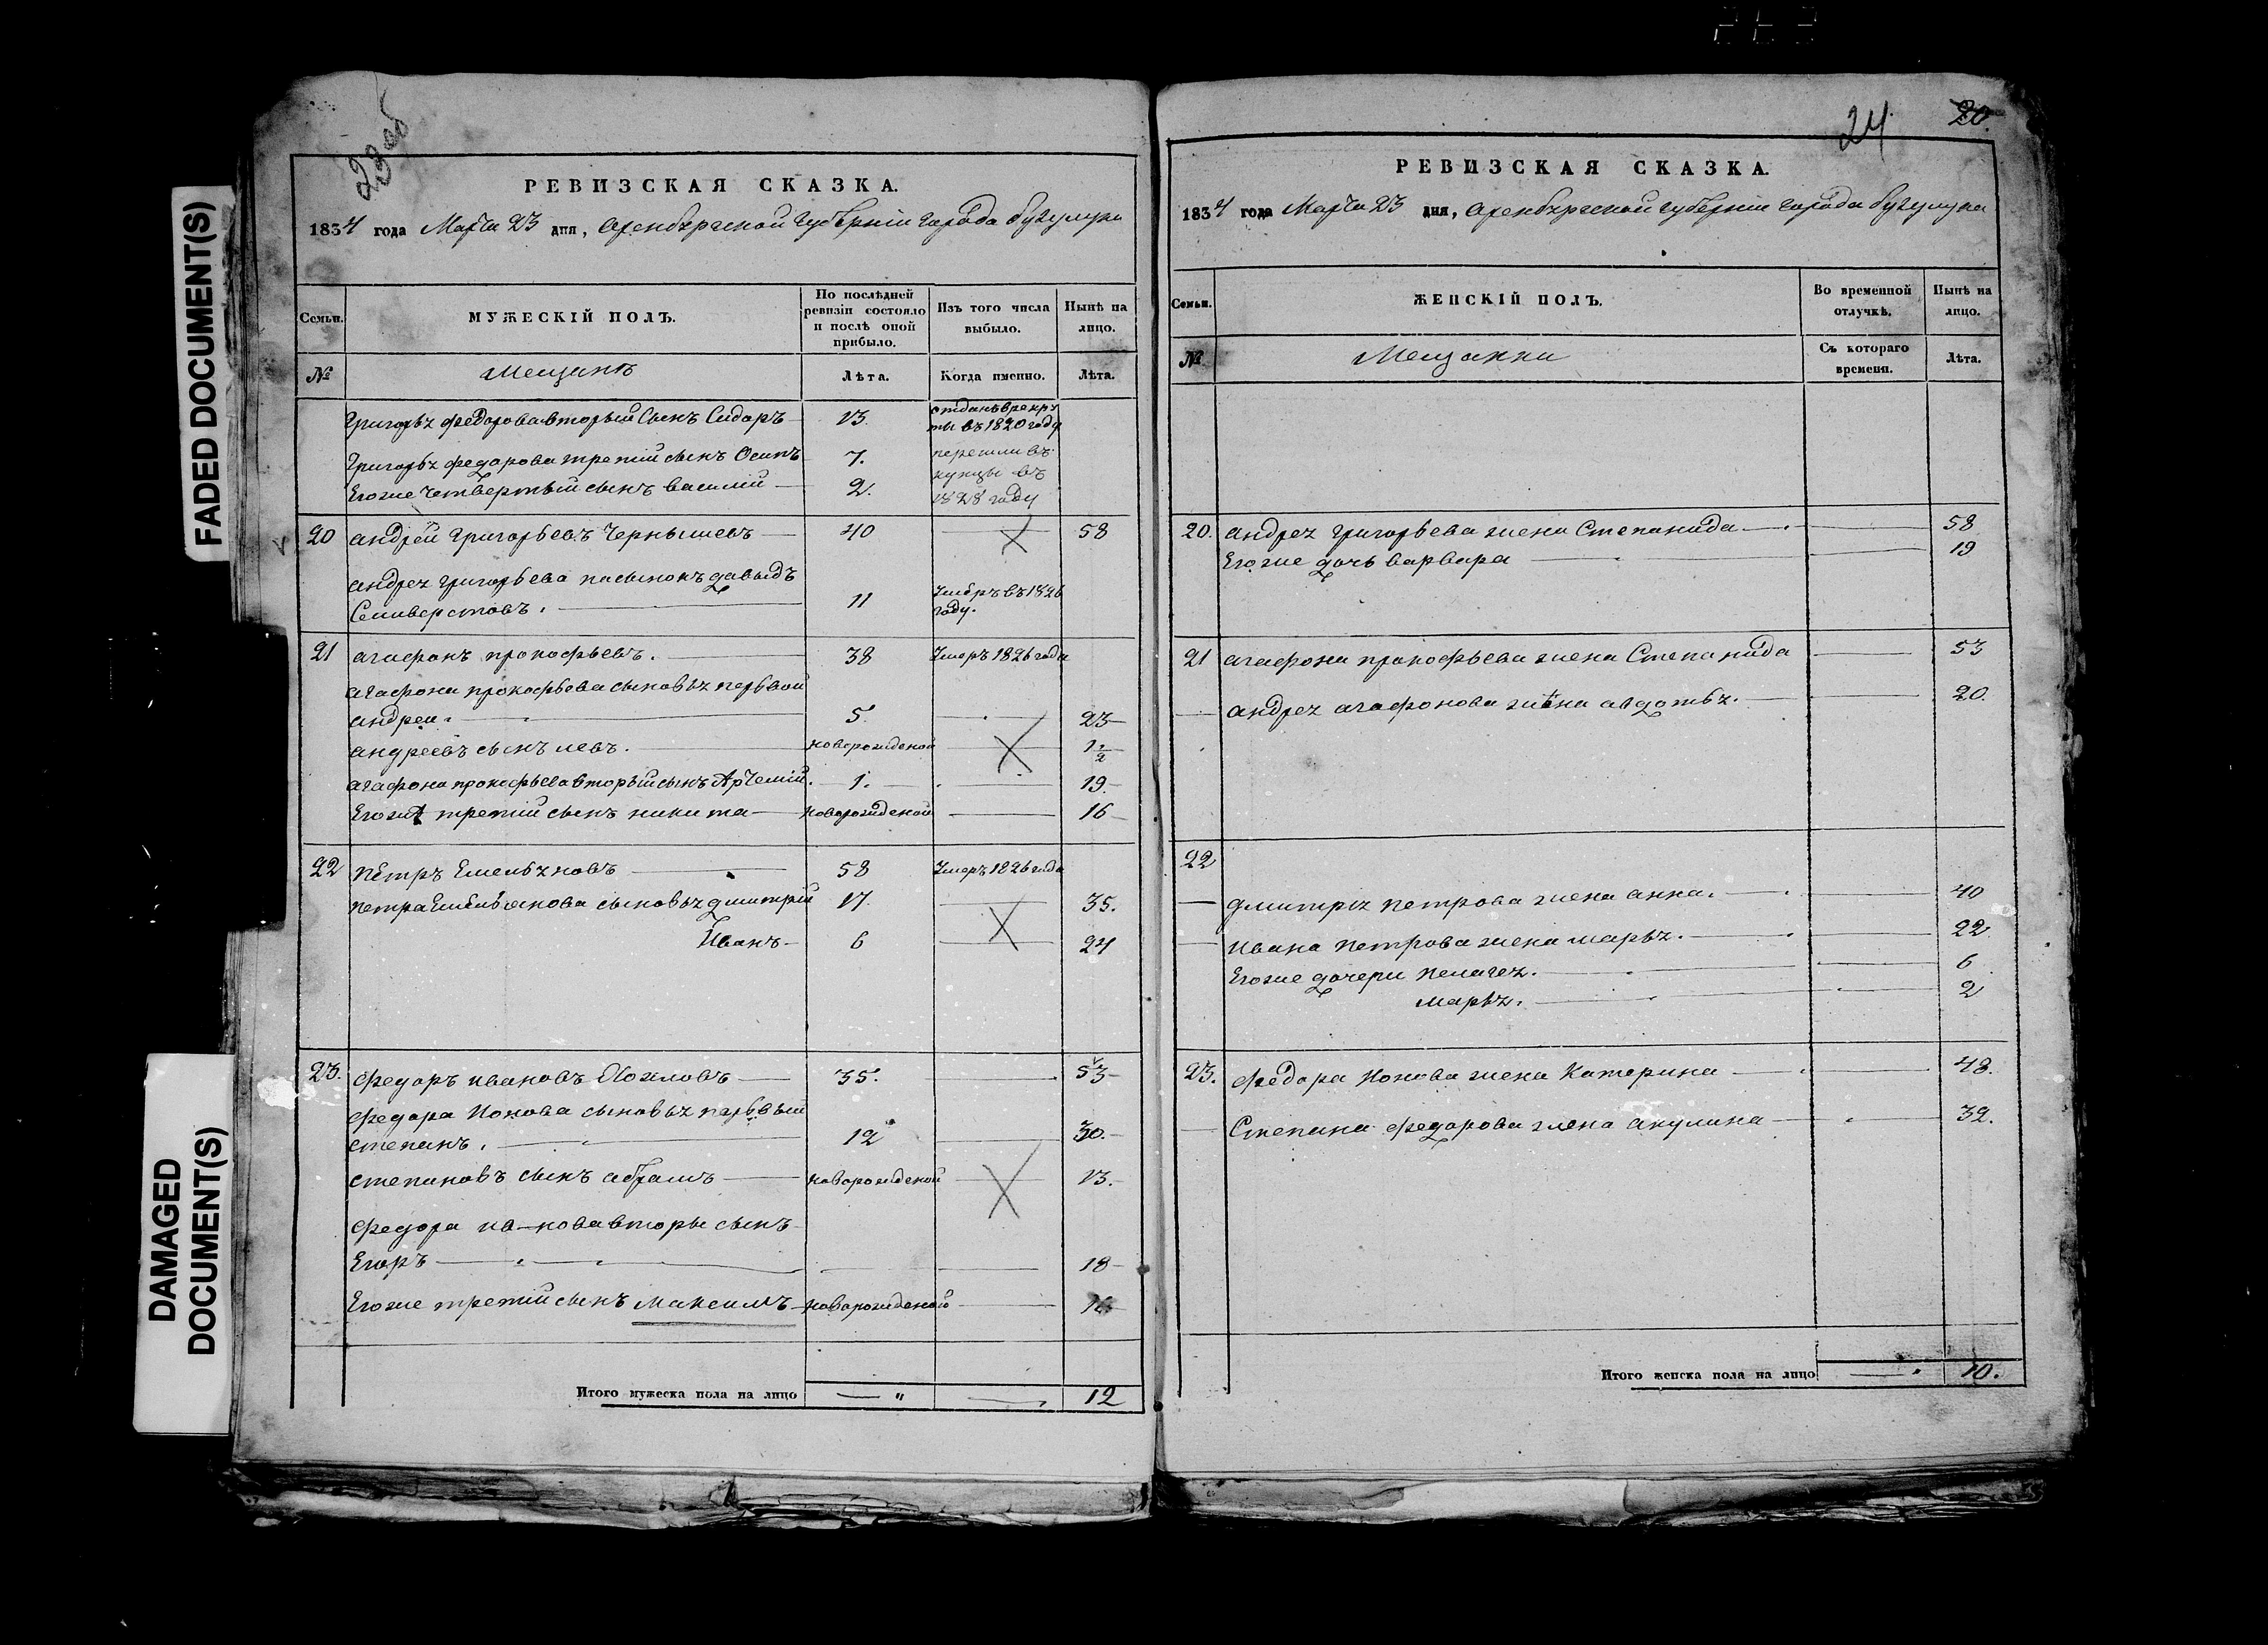 FADED DOCUMENT(S)
DAMAGED
DOCUMENT(S)
23 об
РЕВИЗСКАЯ СКАЗКА.
1834 года Марта 23 дня, Оренбургской губернии города бугулмы
Семьи. МУЖЕСКІЙ ПОЛЪ. По послѣдней ревизіи состояло и послѣ оной прибыло. Изъ того числа выбыло. Нынѣ на лицо.
№ Мещанъ Лѣта. Когда именно. Лѣта.
Григорья федорова вторый сынъ Сидоръ 13. отданъ в рекру
ты въ 1820 году
Григорья федорова третий сынъ Осипъ 7. перешли въ
Егоже четвертый сынъ василий 2. купцы въ
1828 году
20 андрей григорьевъ Чернышевъ 40 58
андрея григорьева пасынокъ давыдъ
Селиверстовъ. 11 Умеръ въ 1826
году.
21 агафонъ прокофьевъ. 38 Умеръ 1826 года
агафона прокофьева сыновья первой
андреи. 5. 23
андреевъ сынъ левъ. новорожденой 1 1/2
агафона прокофьева вторый сынъ Артемий. 1. 19.
Егоже третий сынъ никита новорожденой 16
22 Пётръ Емельяновъ 58 Умеръ 1826 года
петра Емельянова сыновья дмитрий 17 35.
Иванъ 6 24
23. федоръ ивановъ 35. 53
федора Иванова сыновья первый
степанъ. 12 30.
степановъ сынъ абрамъ новорожденой 13.
федора ива-нова вторы сынъ
Егоръ 18
Егоже третий сынъ максимъ новорожденой 16
Итого мужеска пола на лицо " 12
24 20.
РЕВИЗСКАЯ СКАЗКА.
1834 года Марта 23 дня, Оренбургской губернии города
Семьи. ЖЕНСКІЙ ПОЛЪ. Во временной отлучкѣ. Нынѣ на лицо.
№ Мещанки Съ котораго времени. Лѣта.
20. андрея григорьева жена Степанида 58
Егоже дочь варвара 19
21 агафона прокофьева жена Степанида 53
андрея агафонова жена авдотья. 20.
22
дмитрия петрова жена анна. 40
ивана петрова жена марья. 22
Егоже дочери пелагея. 6
марья. 2
23. федора Иванова жена Катерина 48.
Степана федорова жена акулина 32.
Итого женска пола на лицо 10.